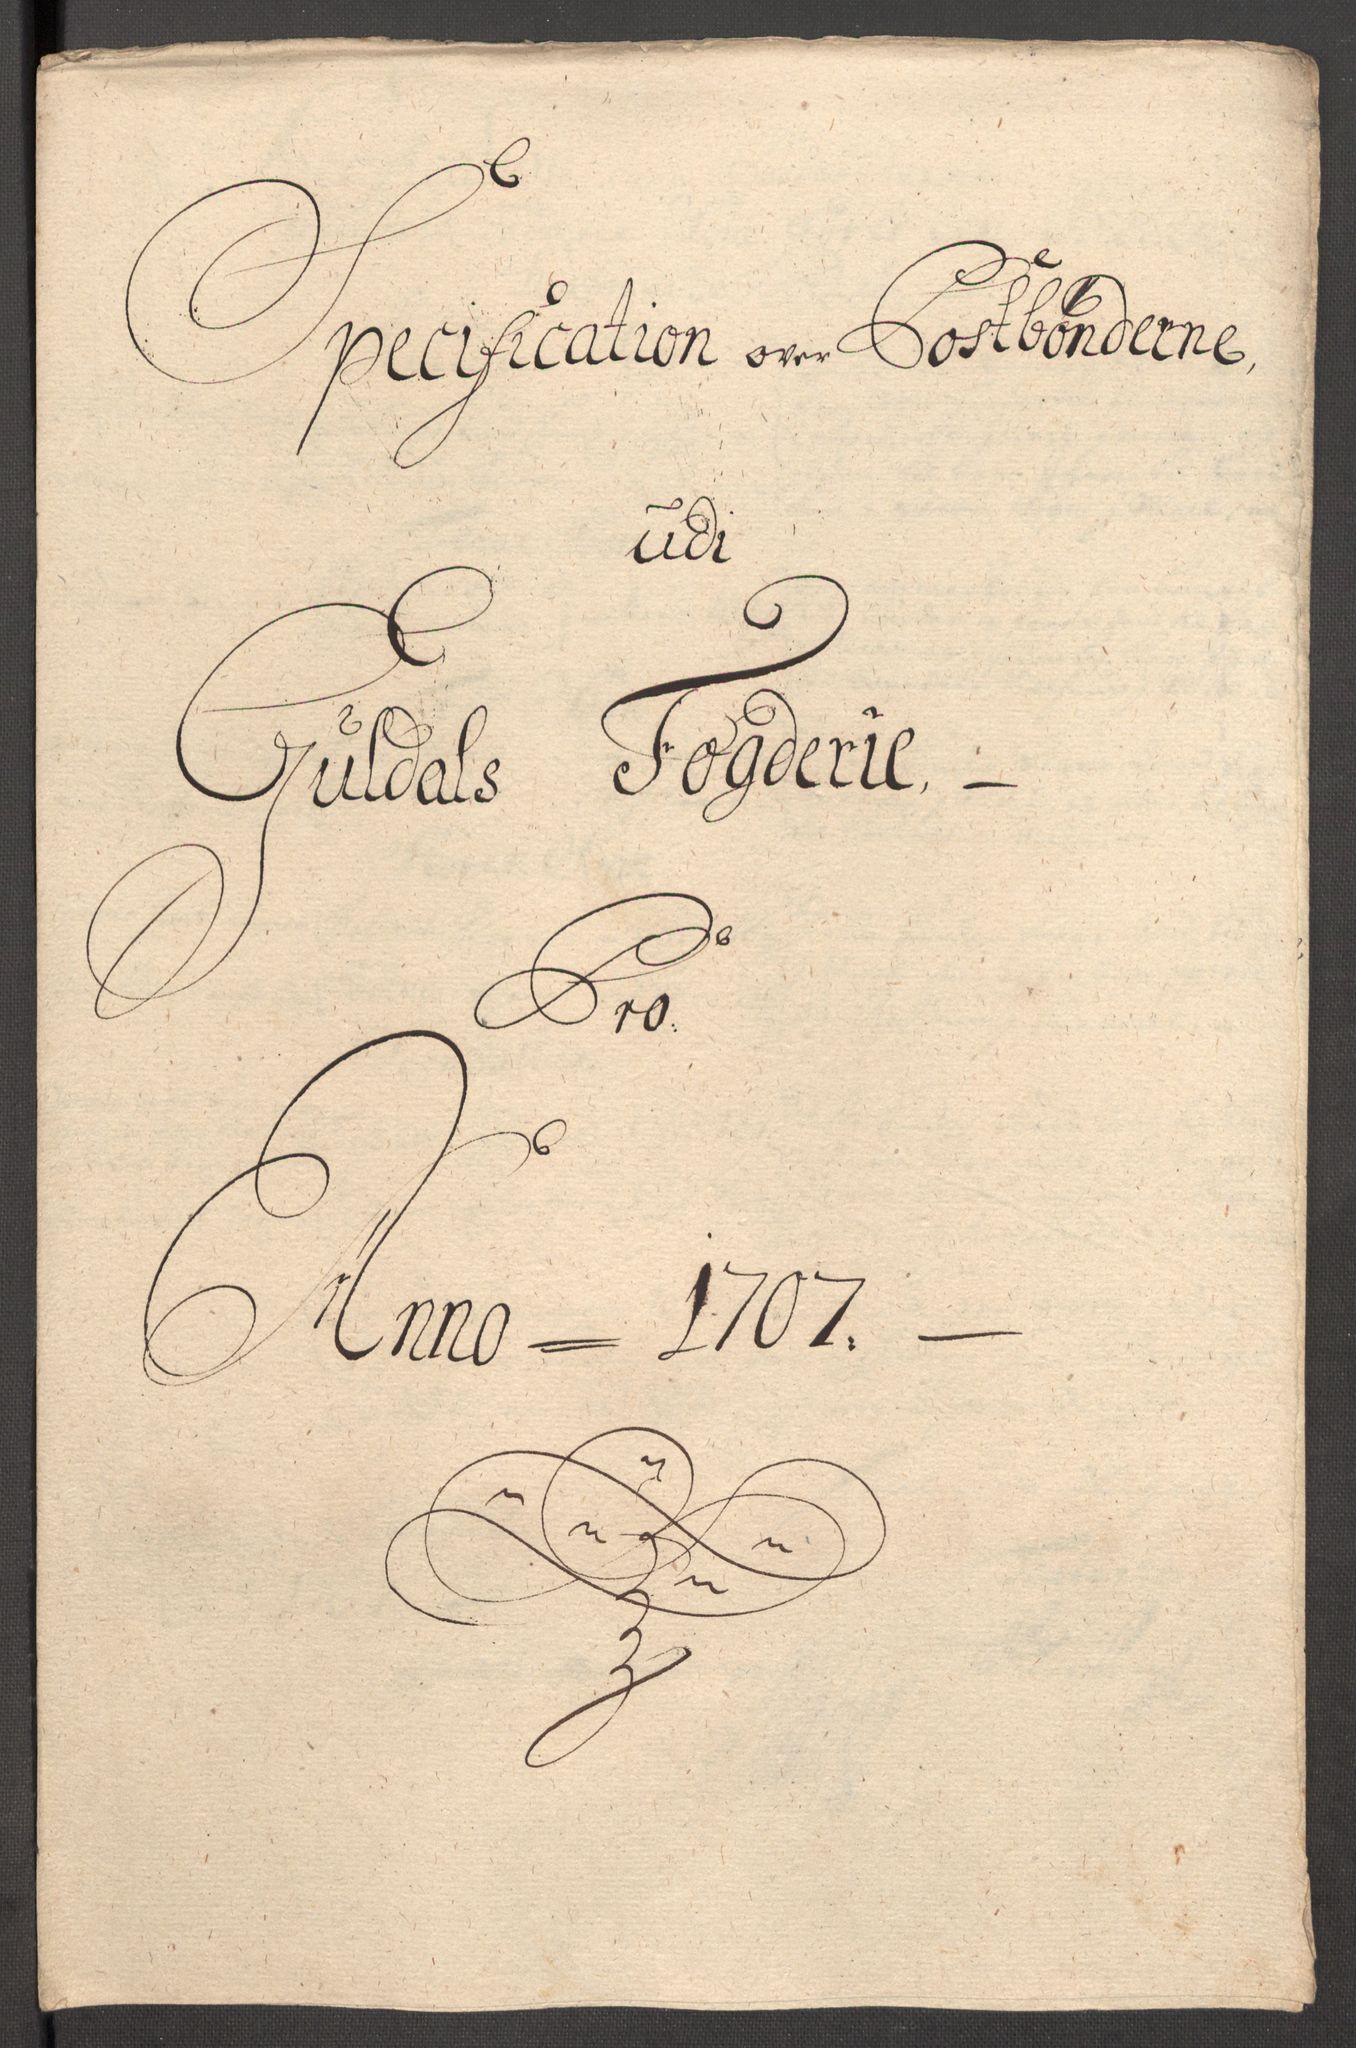 Specification over Postbönderne,
udi
Guldals Fogderie. —
Pro.
Anno = 1707. —